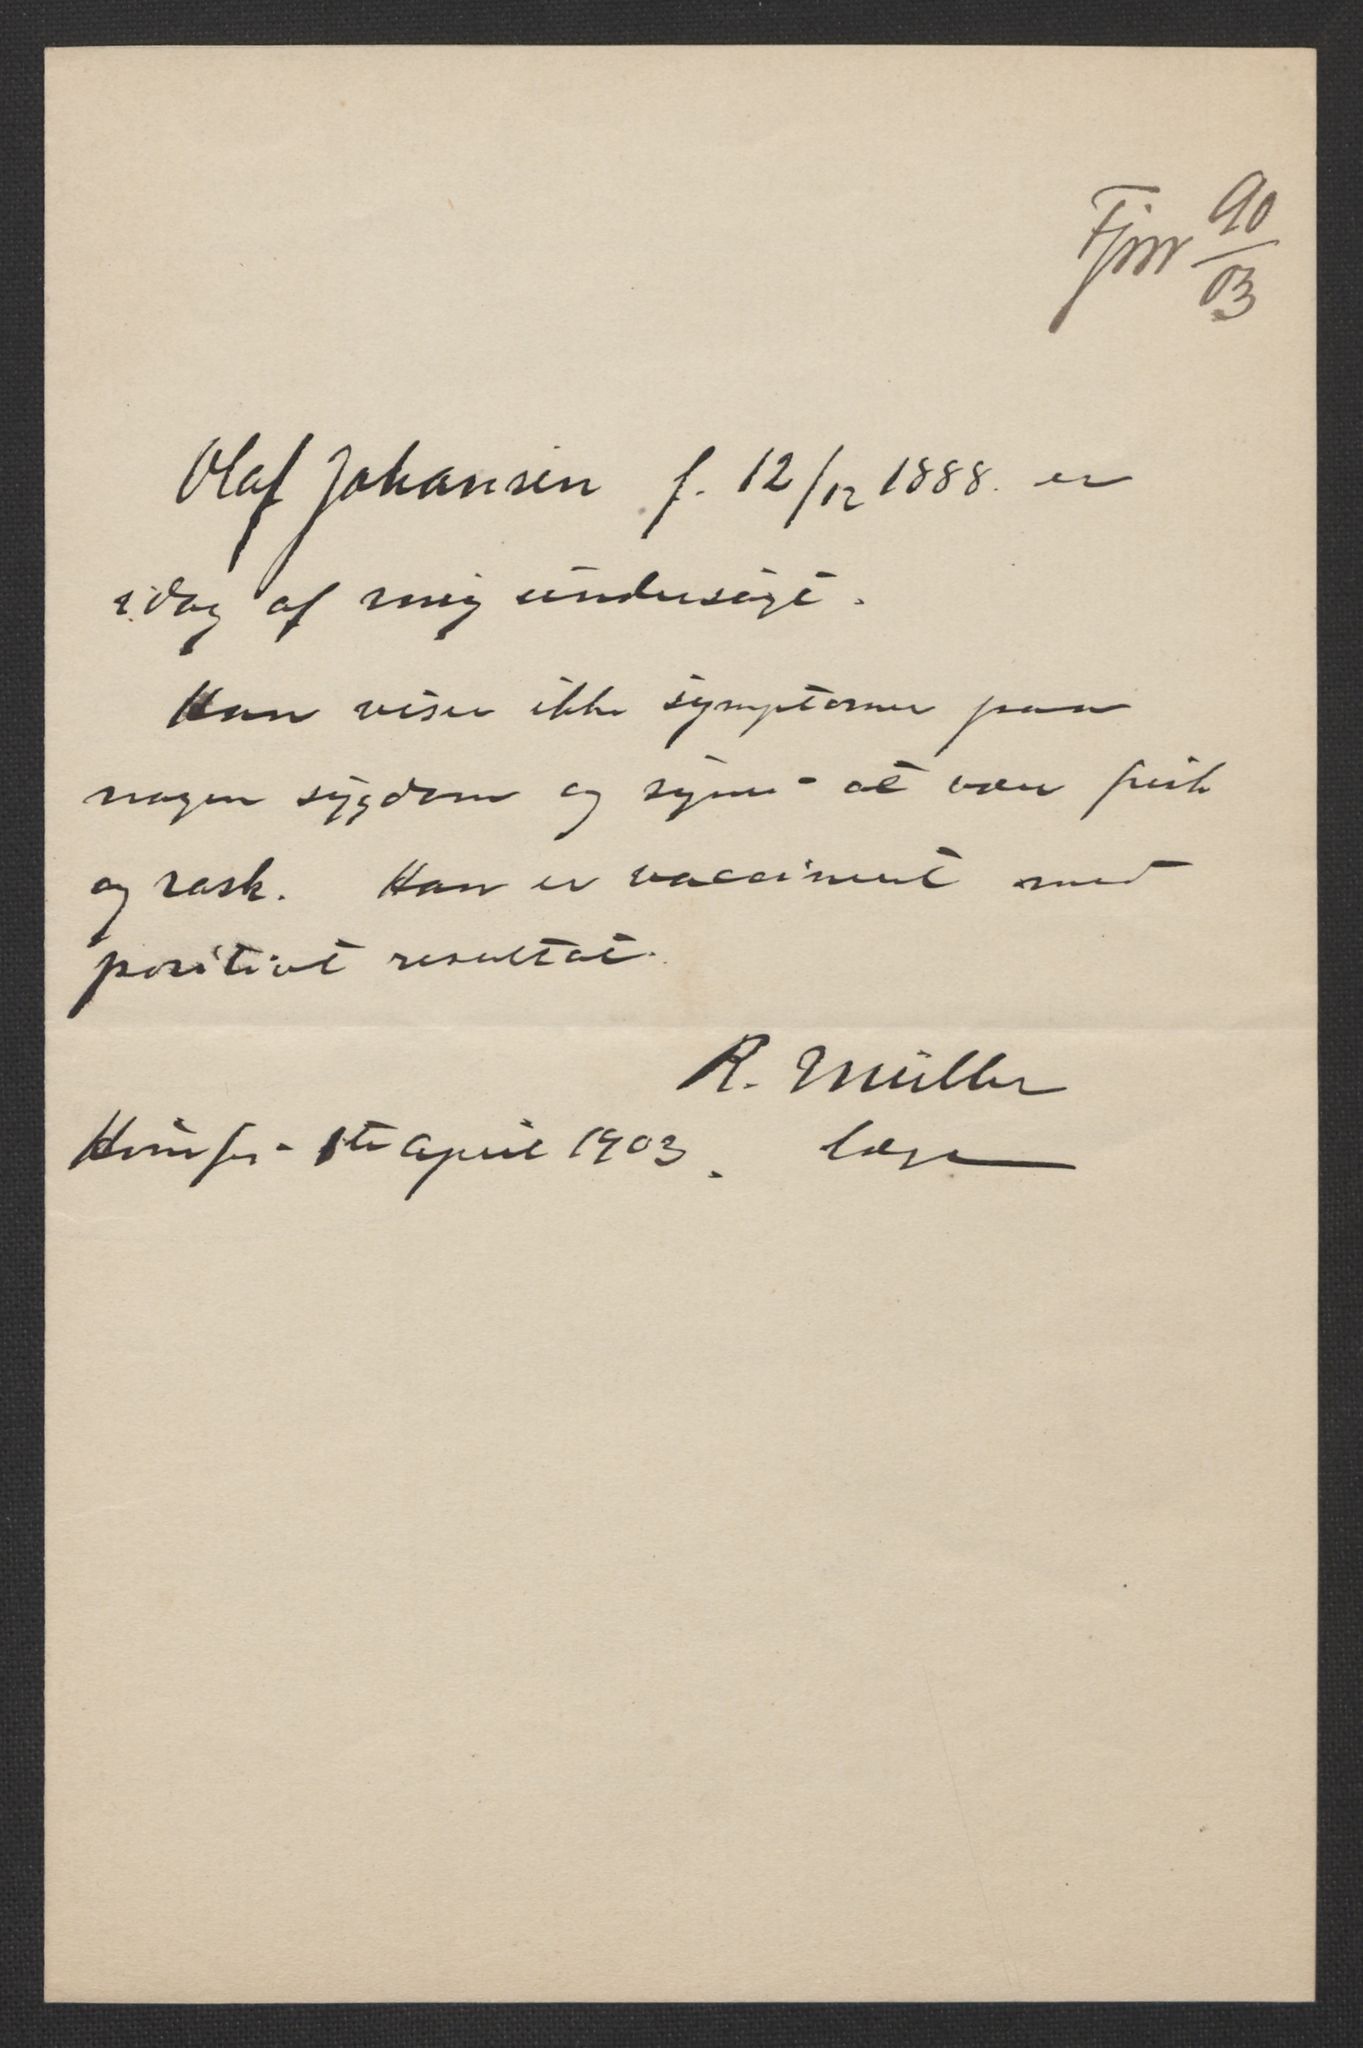 Fjnr 90/03
Olaf Johansen f. 12/12 1888. er
idag af mig undersøgt.
Han viser ikke symptomer paa
nogen sygdom og synes at være frisk
og rask. Han er vaccineret med
positivt resultat.
R. Müller
1ste april 1903. læge